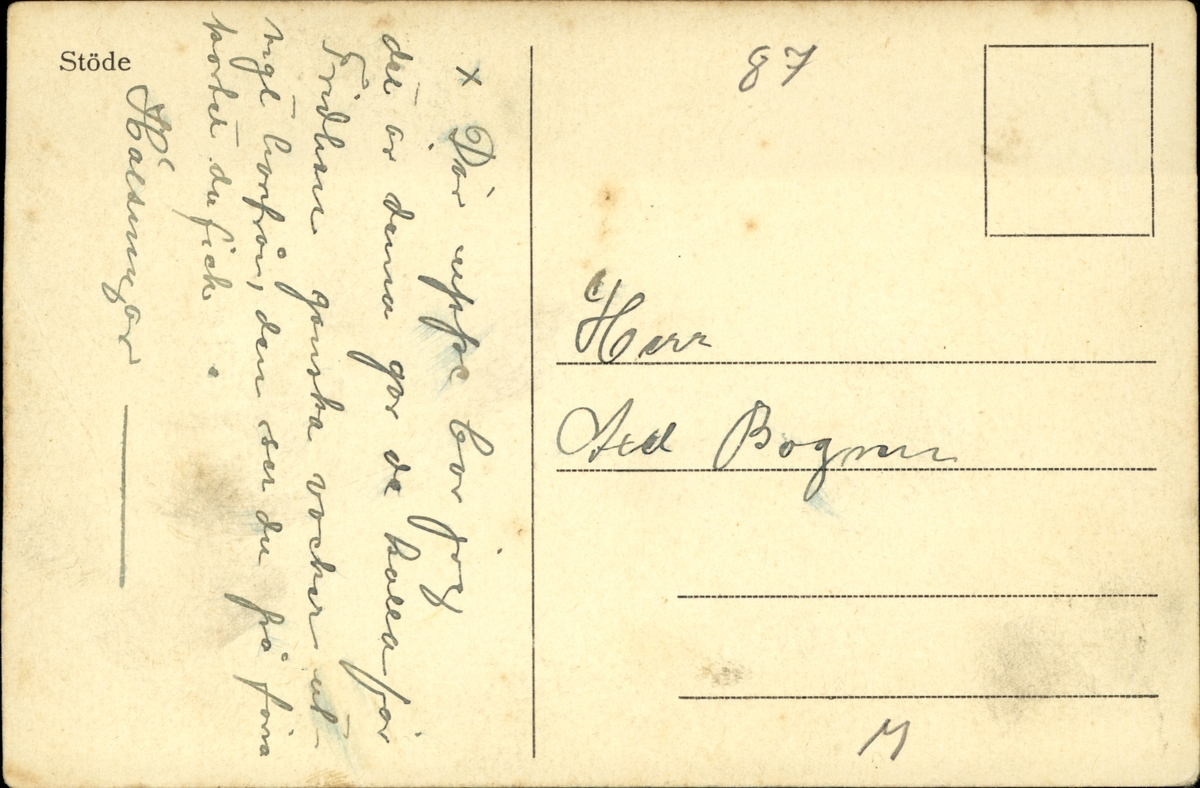 Stöde
x Där uppe bor jag
det är denna gör de kalla för
Fridhem ganska vacker ut
sigt härifrån, den ser du på förra
kortet du fick.
Hälsningar
87
Herr
Axel Bogren
M